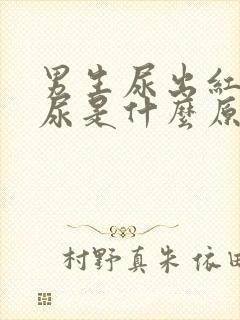 男生尿出紅
尿是什麼原
村野真朱 依田